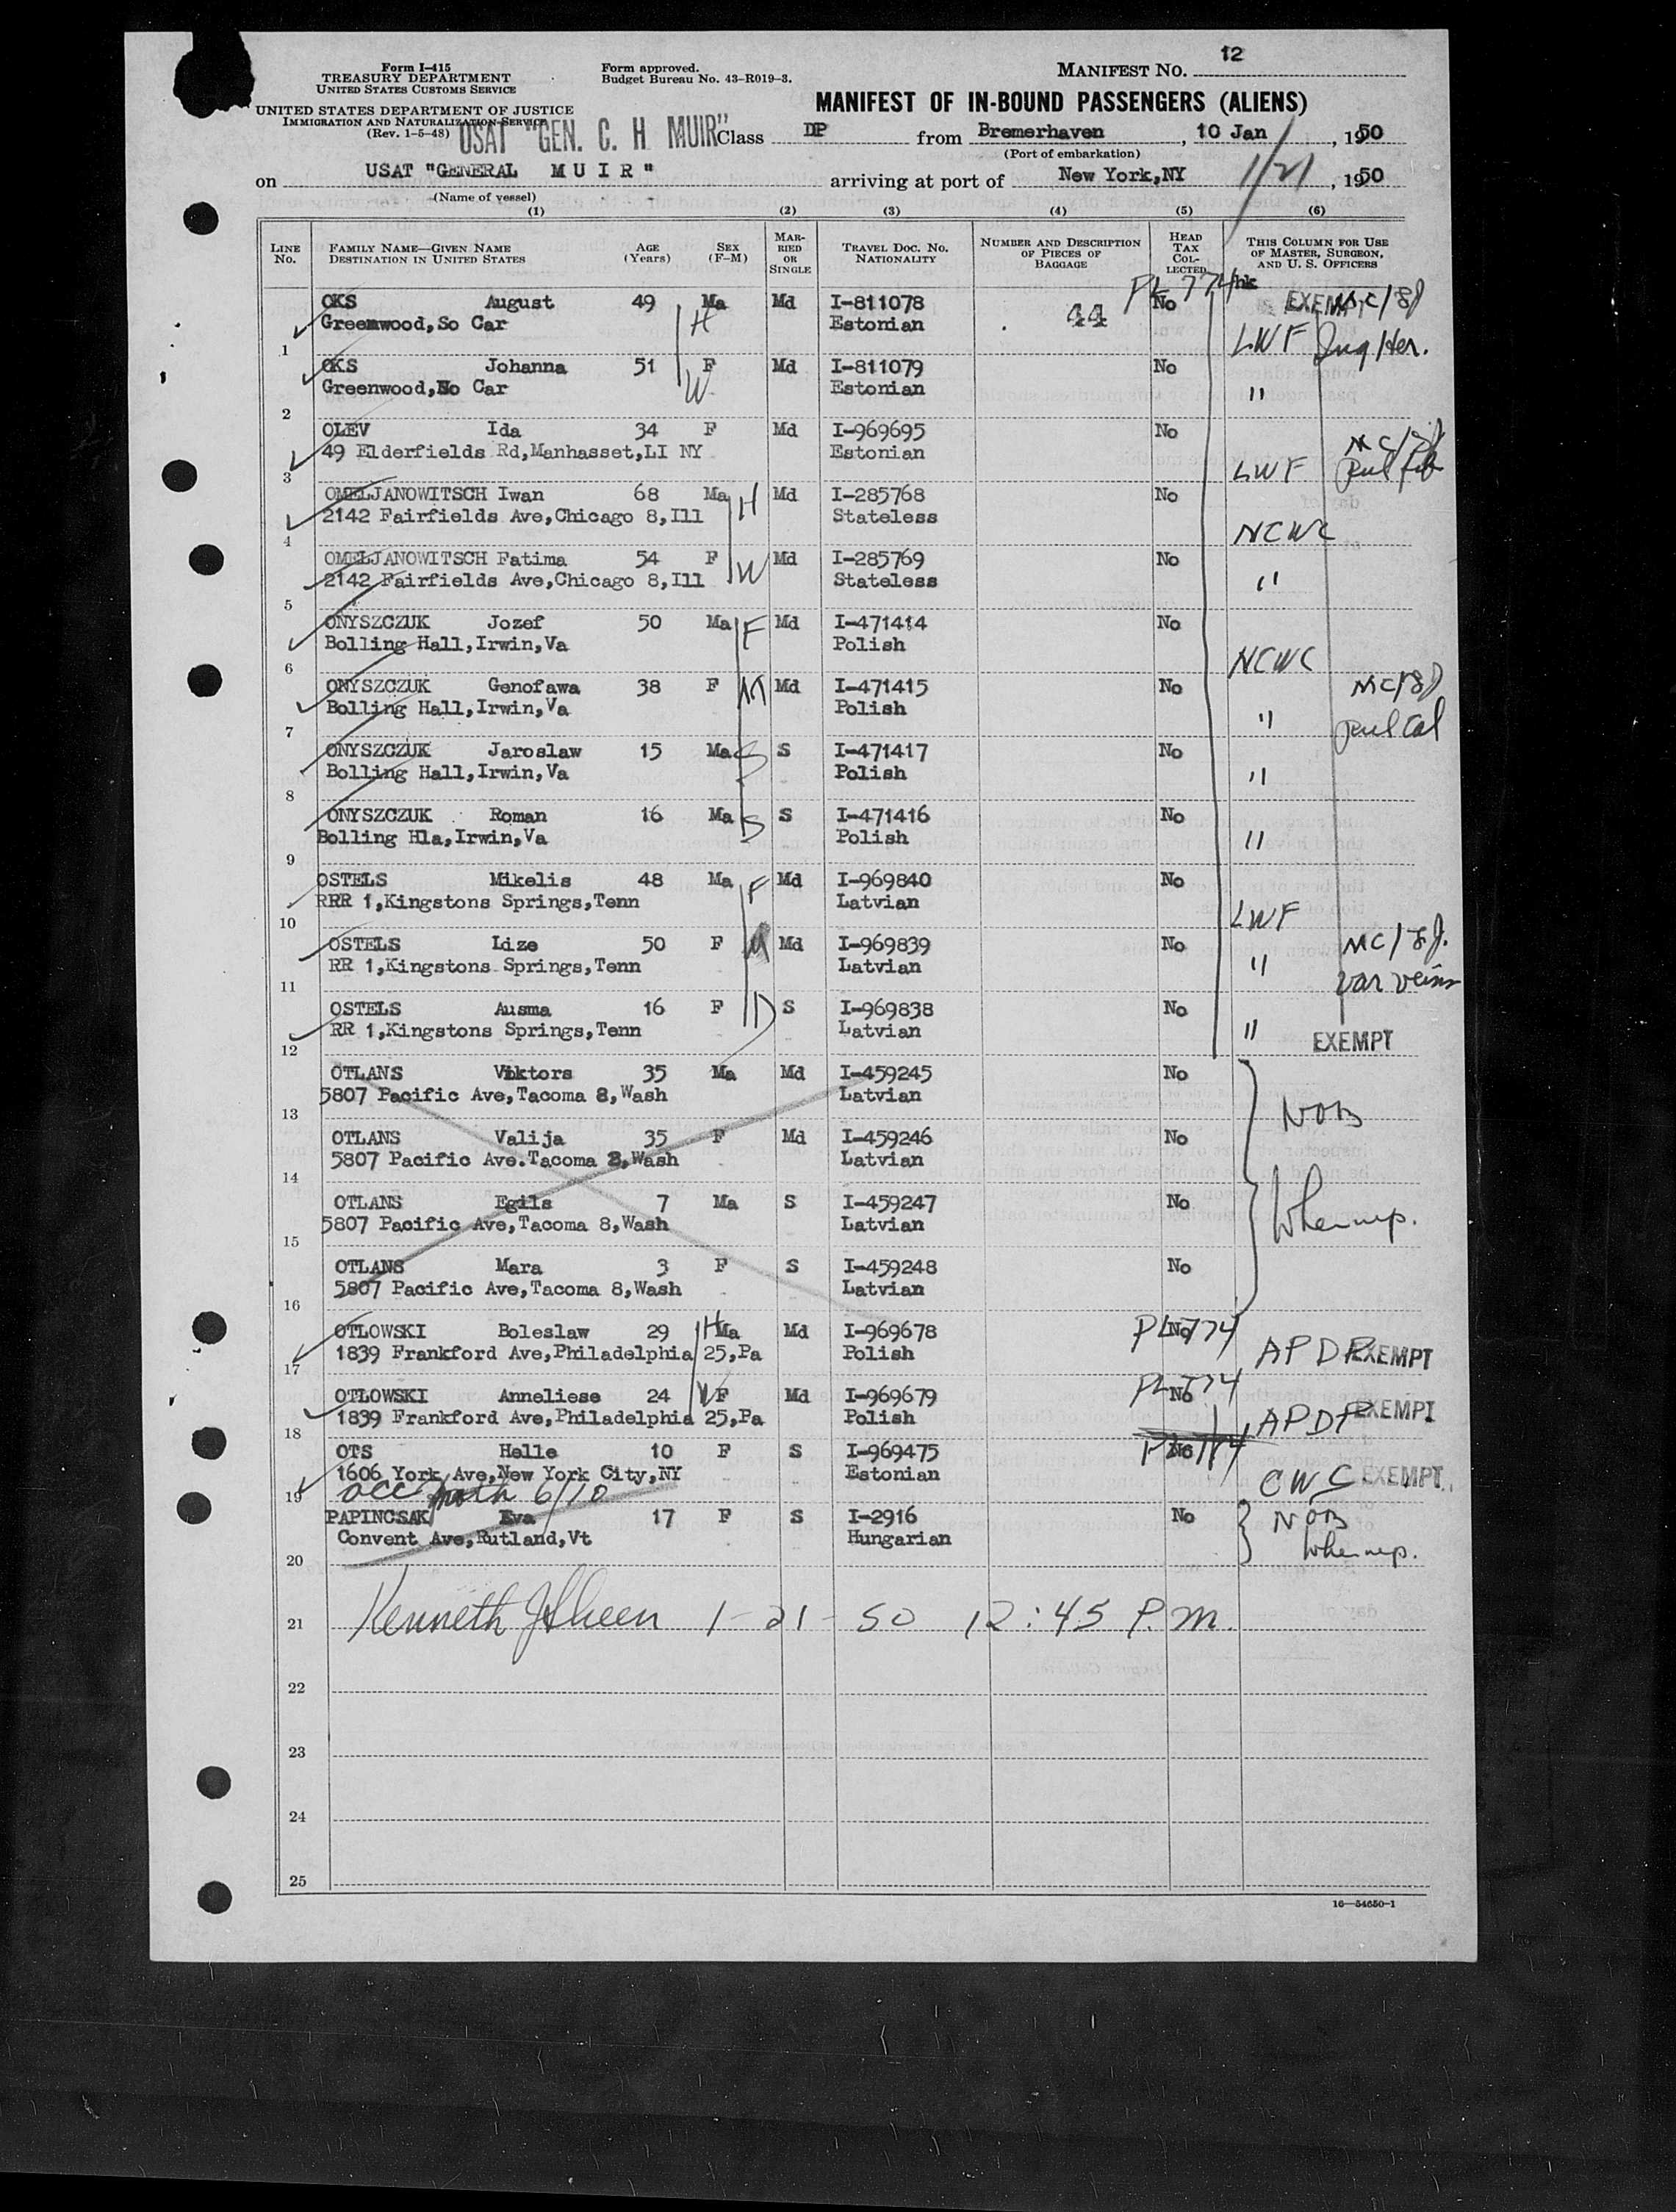 12
Form I-415
TREASURY DEPARTMENT
UNITED STATES CUSTOMS SERVICE
Form approved.
Budget Bureau No. 43-R019-3.
MANIFEST NO.
UNITED STATES DEPARTMENT OF JUSTICE
IMMIGRATION AND NATURALIZATION SERVICE
(Rev. 1-5-48)
MANIFEST OF IN-BOUND PASSENGERS (ALIENS)
USAT "GEN. C. H MUIR"
Class DP from Bremerhaven, 10 Jan, 1950
(Port of embarkation)
on USAT "GENERAL MUIR" arriving at port of New York,NY 1/21, 1950
(Name of vessel)
(1) (2) (3) (4) (5) (6)
LINE NO. FAMILY NAME—GIVEN NAME DESTINATION IN UNITED STATES AGE (Years) SEX (F-M) MARRIED OR SINGLE TRAVEL DOC. NO. NATIONALITY NUMBER AND DESCRIPTION OF PIECES OF BAGGAGE HEAD TAX COLLECTED THIS COLUMN FOR USE OF MASTER, SURGEON, AND U. S. OFFICERS
PL 774
OKS August 49 Ma Md I-811078 44 No EXEMPT MC/
Greenwood,So Car H Estonian LWF Ing Her.
1
OKS Johanna 51 F Md I-811079 No
Greenwood,So Car W Estonian "
2
OLEV Ida 34 F Md I-969695 No MC/
49 Elderfields Rd,Manhasset,LI NY Estonian LWF Pul fib
3
OMELJANOWITSCH Iwan 68 Ma H Md I-285768 No
2142 Fairfields Ave,Chicago 8,Ill Stateless NCWC
4
OMELJANOWITSCH Fatima 54 F W Md I-285769 No
2142 Fairfields Ave,Chicago 8,Ill Stateless "
5
ONYSZCZUK Jozef 50 Ma F Md I-471414 No
Bolling Hall,Irwin,Va Polish NCWC
6
ONYSZCZUK Genofawa 38 F M Md I-471415 No MC/
Bolling Hall,Irwin,Va Polish " pul cal
7
ONYSZCZUK Jaroslaw 15 Ma S S I-471417 No
Bolling Hall,Irwin,Va Polish "
8
ONYSZCZUK Roman 16 Ma S S I-471416 No
Bolling Hla,Irwin,Va Polish "
9
OSTELS Mikelis 48 Ma F Md I-969840 No
RRR 1,Kingstons Springs,Tenn Latvian LWF
10
OSTELS Lize 50 F M Md I-969839 No MC/
RR 1,Kingstons Springs,Tenn Latvian " var veins
11
OSTELS Ausma 16 F D S I-969838 No
RR 1,Kingstons Springs,Tenn Latvian " EXEMPT
12
OTLANS Viktors 35 Ma Md I-459245 No
5807 Pacific Ave,Tacoma 8,Wash Latvian NOB
13
OTLANS Valija 35 F Md I-459246 No
5807 Pacific Ave.Tacoma 8,Wash Latvian
14
OTLANS Egils 7 Ma S I-459247 No
5807 Pacific Ave,Tacoma 8,Wash Latvian
15
OTLANS Mara 3 F S I-459248 No
5807 Pacific Ave,Tacoma 8,Wash Latvian
16
OTLOWSKI Boleslaw 29 H Ma Md I-969678 PL 774 No
1839 Frankford Ave,Philadelphia 25,Pa Polish APDR EXEMPT
17
OTLOWSKI Anneliese 24 W F Md I-969679 PL 774 No
1839 Frankford Ave,Philadelphia 25,Pa Polish APDR EXEMPT
18
OTS Helle 10 F S I-969475 No
1606 York Ave,New York City,NY Estonian CWS EXEMPT
19 acc 6/10
PAPINCSAK Eva 17 F S I-2916 No NOB
Convent Ave,Rutland,Vt Hungarian
20
21 Kenneth 1-21-50 12:45 P.M.
22
23
24
25
16—54650-1